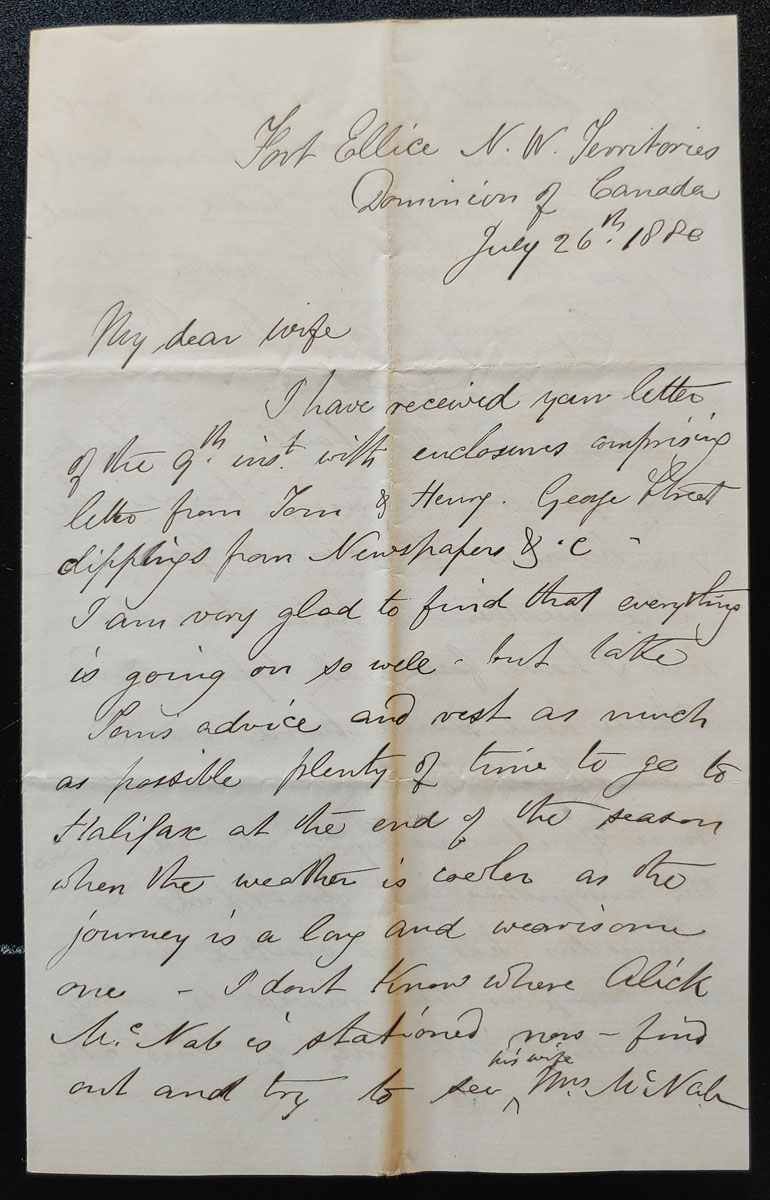 Fort Ellice N. W. Territories
Dominion of Canada
July 26th. 1880
My dear wife
I have received your letter
of the 9th. inst. with enclosures comprising
letter from Tom & Henry. George Street
clippings from Newspapers &c -
I am very glad to find that everything
is going on so well - but take
Toms advice and rest as much
as possible plenty of time to go to
Halifax at the end of the season
when the weather is cooler as the
journey is a long and wearisome
one - I dont know where Alick
Mc. Nab is stationed now - find
his wife
out and try to see ^ Mrs McNab